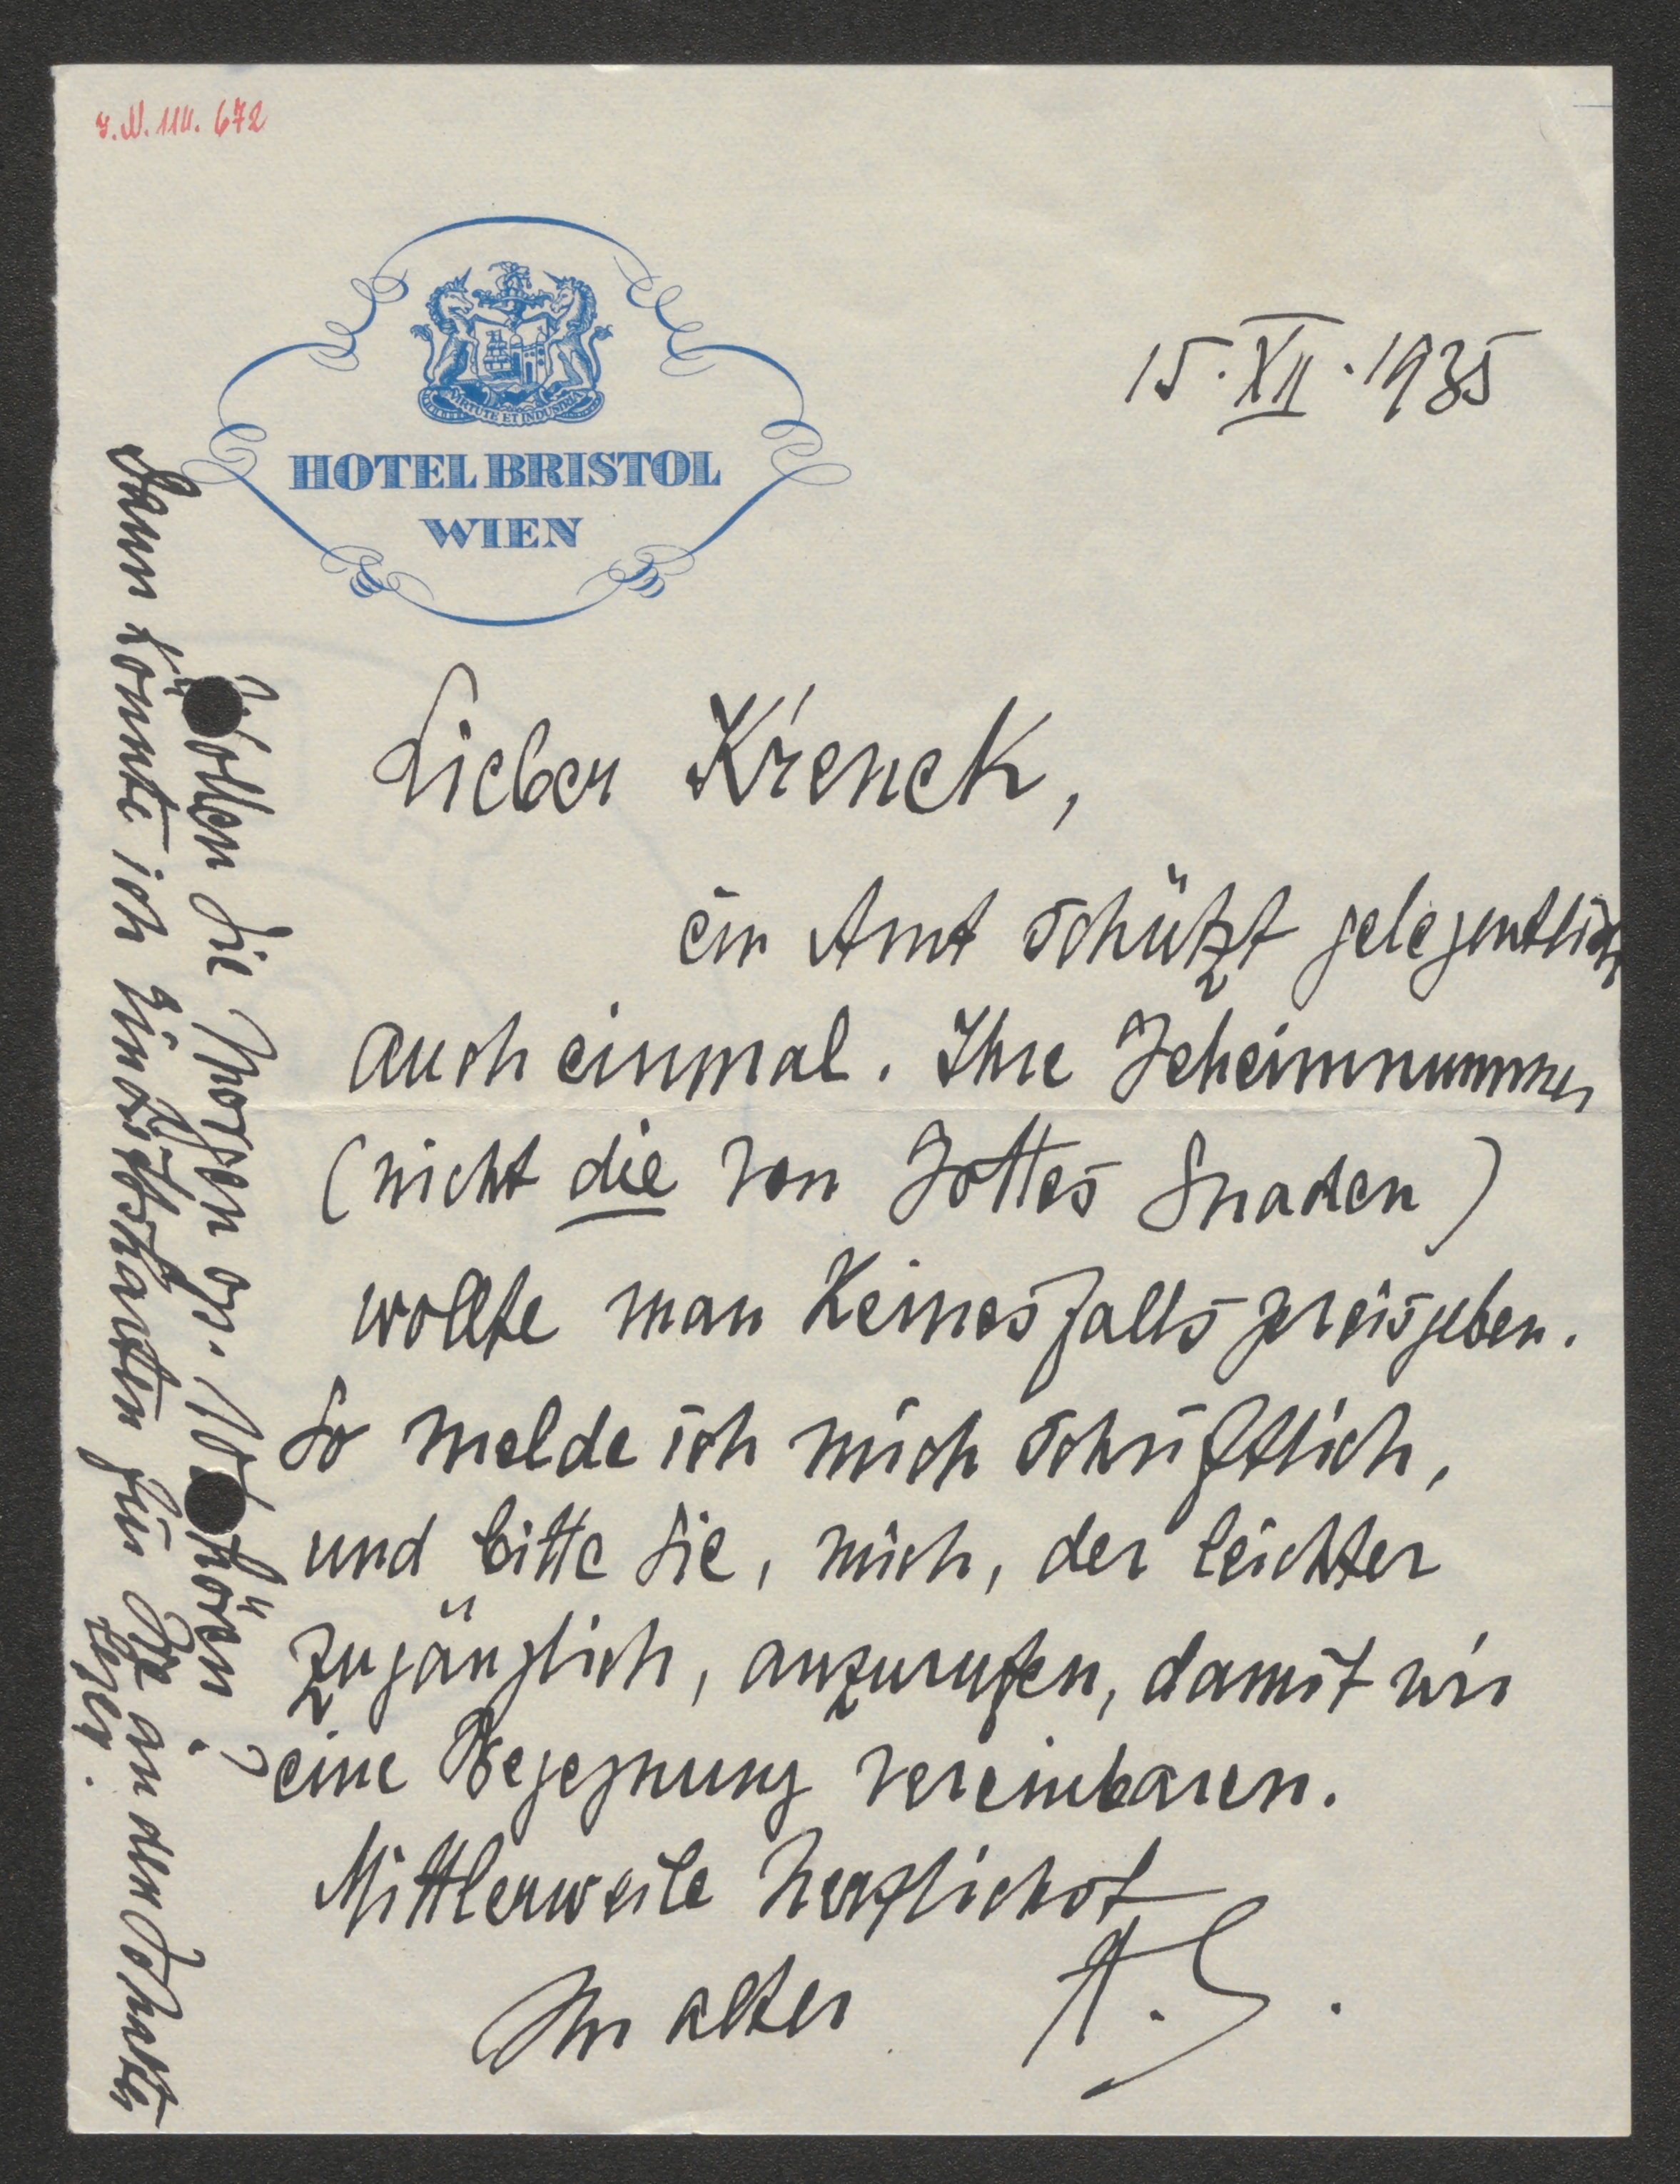 J.N. 114. 672
VIRTUTE ET INDUSTRIA
HOTEL BRISTOL
WIEN
15. XII. 1935
Lieber Křenek,
ein Amt schützt gelegentlich
auch einmal. Ihre Geheimnummer
(nicht die von Gottes Gnaden)
wollte man keinesfalls preisgeben.
So melde ich mich schriftlich,
und bitte Sie, mich, der leichter
zugänglich, anzurufen, damit wir
eine Begegnung vereinbaren.
Mittlerweile herzlichst
Ihr alter A. S.
Wollen Sie Morgen hören?
Dann könnte ich für Sie an den Schalter
legen.